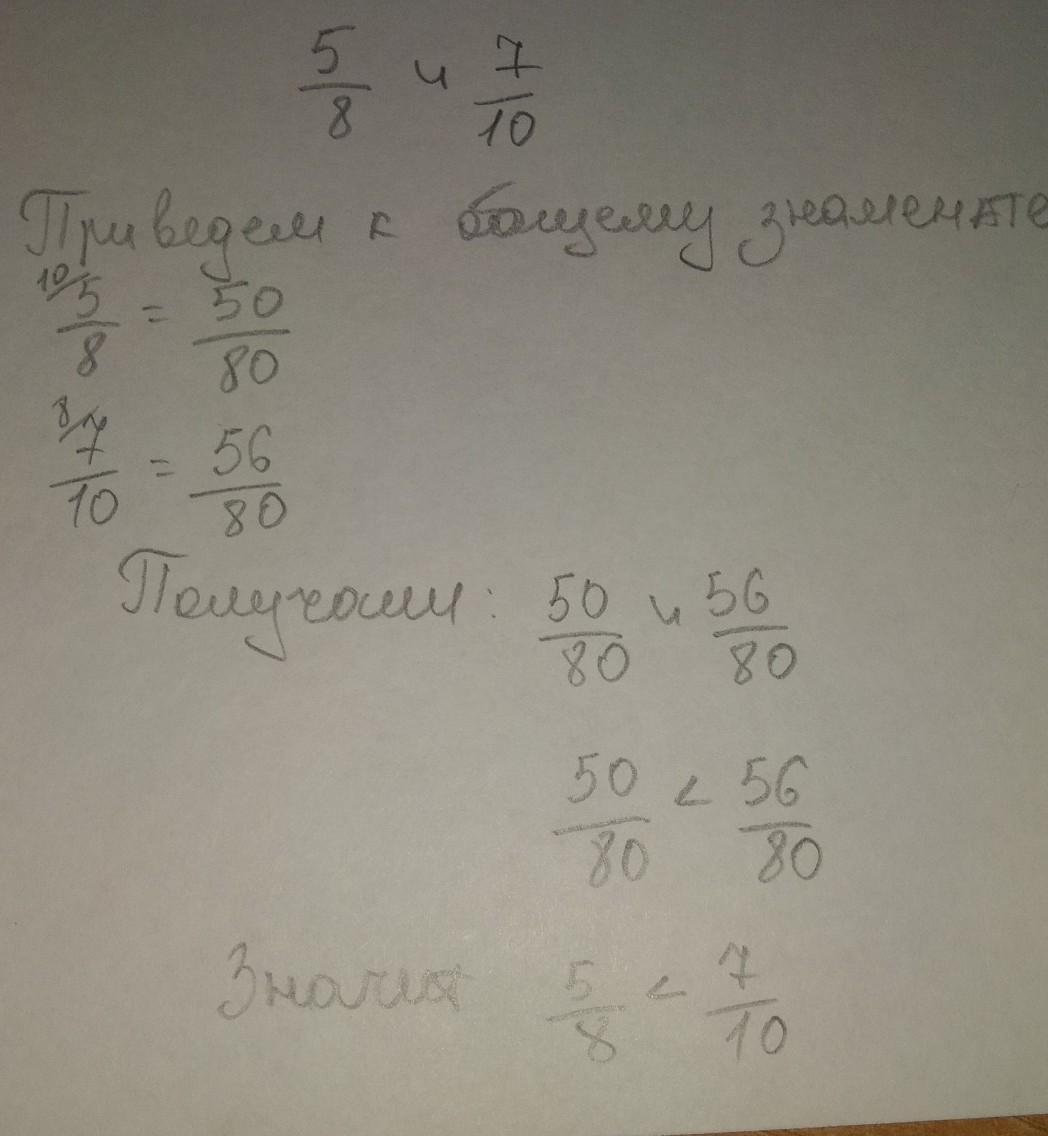 5/8 и 7/10
Приведем к общему знаменате
10/ 5/8 = 50/80
8/ 7/10 = 56/80
Получаем: 50/80 и 56/80
50/80 < 56/80
Значит 5/8 < 7/10